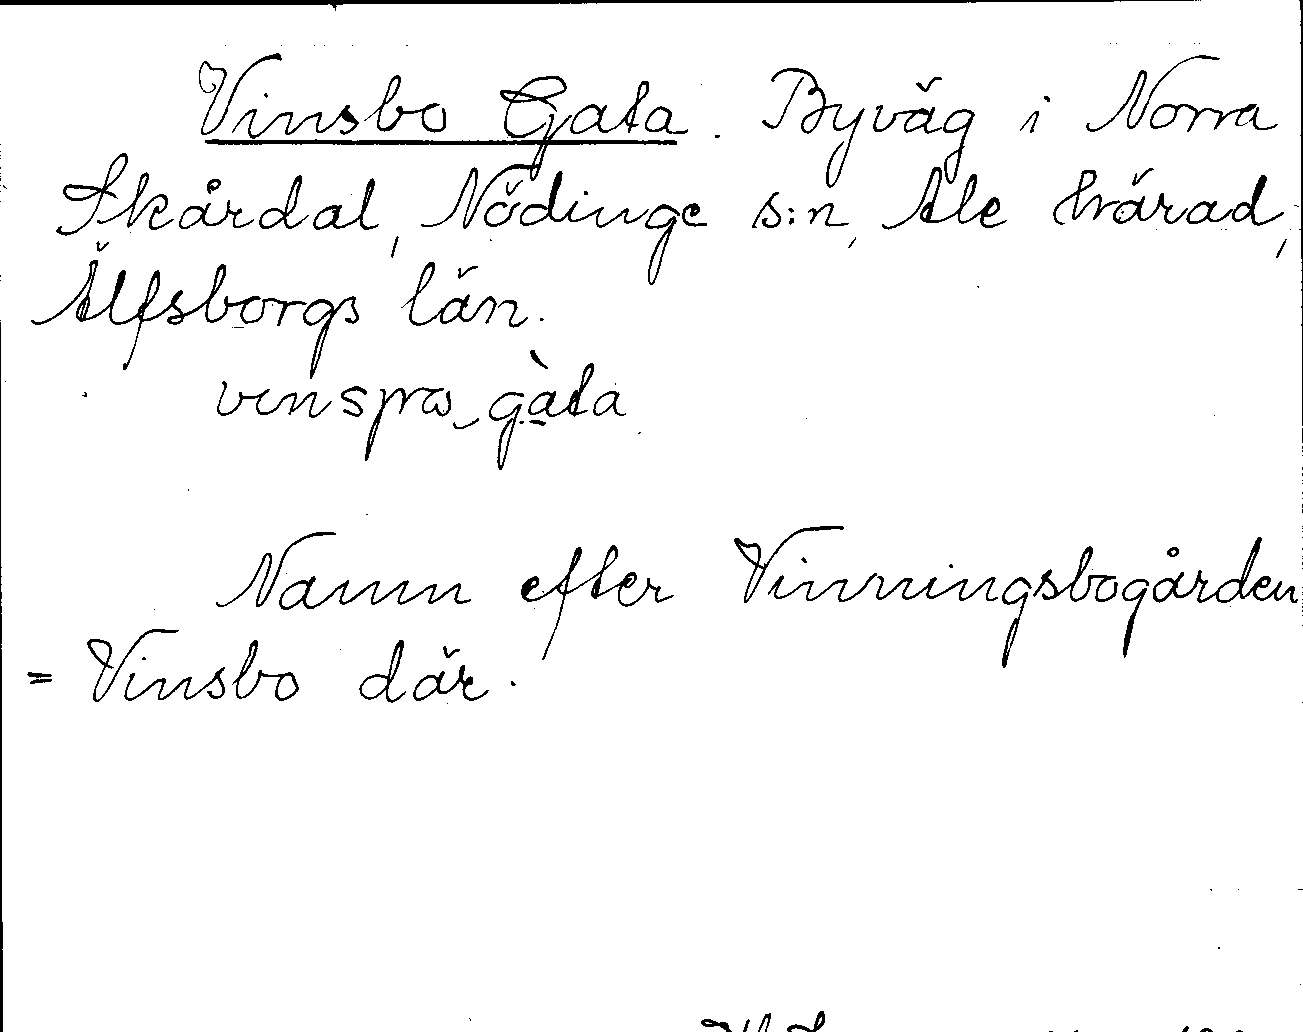 Vinsbo Gata. Byväg i Norra
Skårdal, Nödinge s:n, Ale härad,
Älfsborgs län.
Namn efter Vinningsbogården
= Vinsbo där.